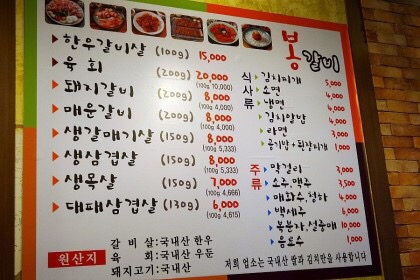 봉갈비
한우갈비살 (100g) 15,000
육 회 (200g) 20,000
(100g 10,000)
돼지갈비 (200g) 8,000
(100g 4,000)
매운갈비 (200g) 8,000
(100g 4,000)
생갈매기살 (150g) 8,000
(100g 5,333)
생삼겹살 (150g) 8,000
(100g 5,333)
생목살 (150g) 7,000
(100g 4,666)
대패삼겹살 (130g) 6,000
(100g 4,615)
식사류
김치찌개 5,000
소면
냉면 4,000
김치양밥 4,000
라면 3,000
공기밥+된장찌개 1,000
주류
막걸리 3,000
소주.맥주 3,500
매화수.청하 4,000
백세주 6,000
복분자.설중매 10,000
음료수 1,000
원산지
갈 비 살:국내산 한우
육 회:국내산 우둔
돼지고기:국내산
저희 업소는 국내산 쌀과 김치만을 사용합니다